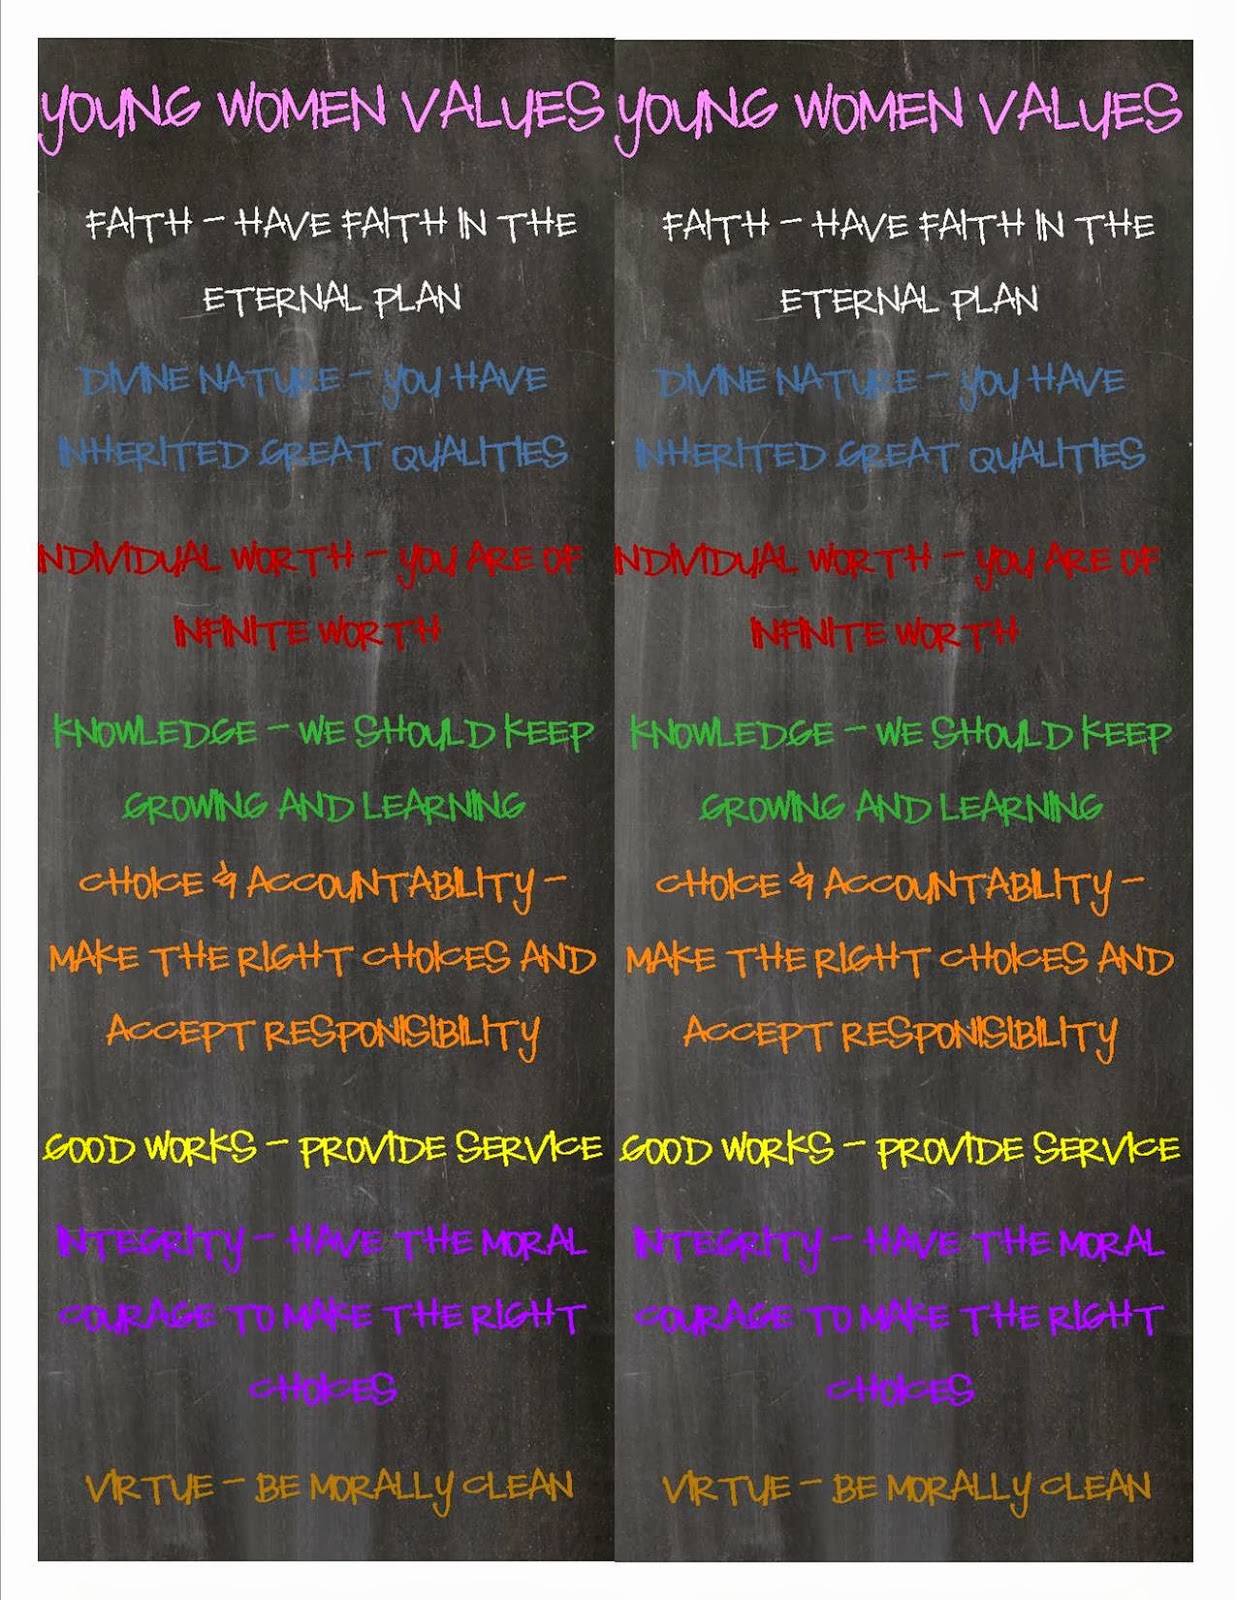 YOUNG WOMEN VALUES
FAITH - HAVE FAITH IN THE
ETERNAL PLAN
DIVINE NATURE - YOU HAVE
INHERITED GREAT QUALITIES
NDIVIDUAL WORTH - YOU ARE OF
INFINITE WORTH
KNOWLEDGE - WE SHOULD KEEP
GROWING AND LEARNING
CHOICE & ACCOUNTABILITY -
MAKE THE RIGHT CHOICES AND
ACCEPT RESPONISIBILITY
GOOD WORKS - PROVIDE SERVICE
INTEGRITY - HAVE THE MORAL
COURAGE TO MAKE THE RIGHT
CHOICES
VIRTUE - BE MORALLY CLEAN
YOUNG WOMEN VALUES
FAITH - HAVE FAITH IN THE
ETERNAL PLAN
DIVINE NATURE - YOU HAVE
INHERITED GREAT QUALITIES
NDIVIDUAL WORTH - YOU ARE OF
INFINITE WORTH
KNOWLEDGE - WE SHOULD KEEP
GROWING AND LEARNING
CHOICE & ACCOUNTABILITY -
MAKE THE RIGHT CHOICES AND
ACCEPT RESPONISIBILITY
GOOD WORKS - PROVIDE SERVICE
INTEGRITY - HAVE THE MORAL
COURAGE TO MAKE THE RIGHT
CHOICES
VIRTUE - BE MORALLY CLEAN